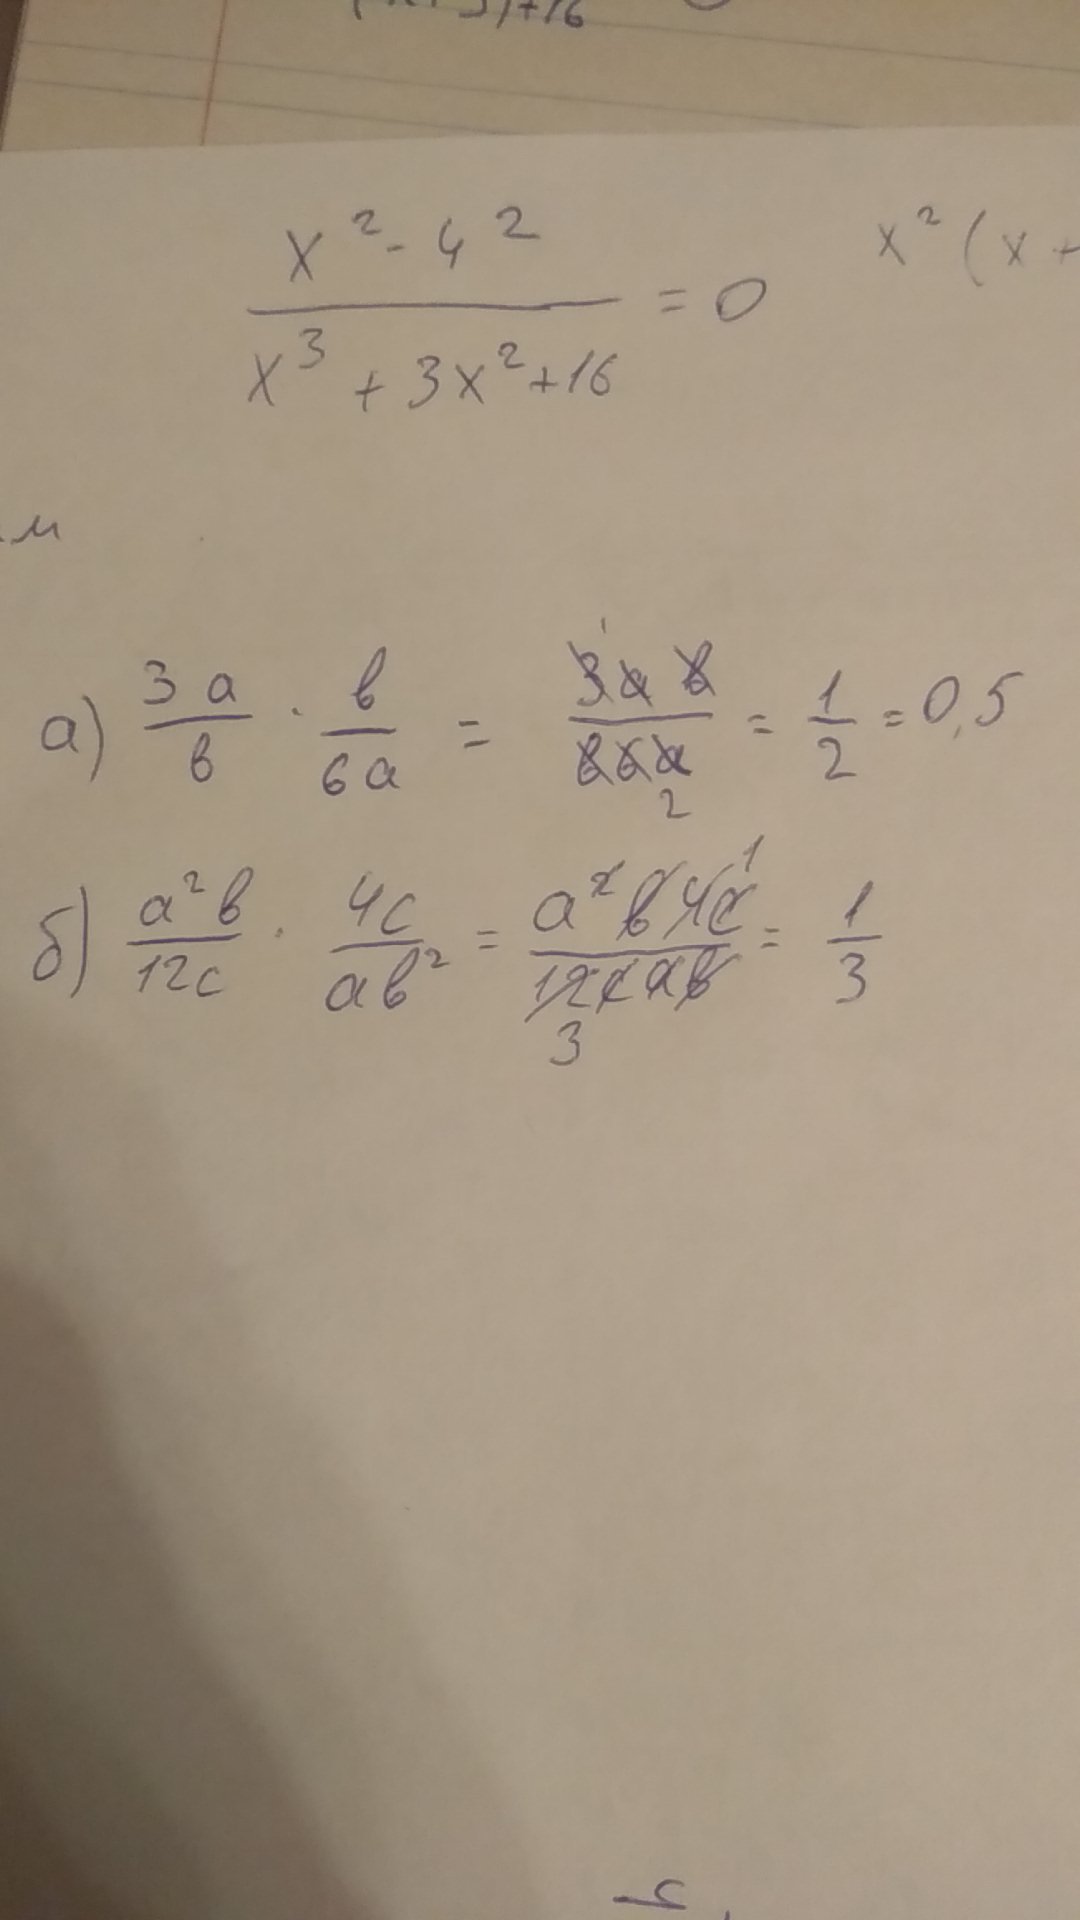 )+16
x² - 4²
x³ + 3x² + 16 = 0
x² (x +
м
а) 3a/в · в/6a = 3aв/в6a = 1/2 = 0,5
1
2
б) a²в/12c · 4c/aв² = a²в4c/12caв = 1/3
1
3